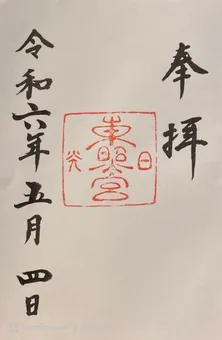 奉拝
日光
東照宮
令和六年五月四日